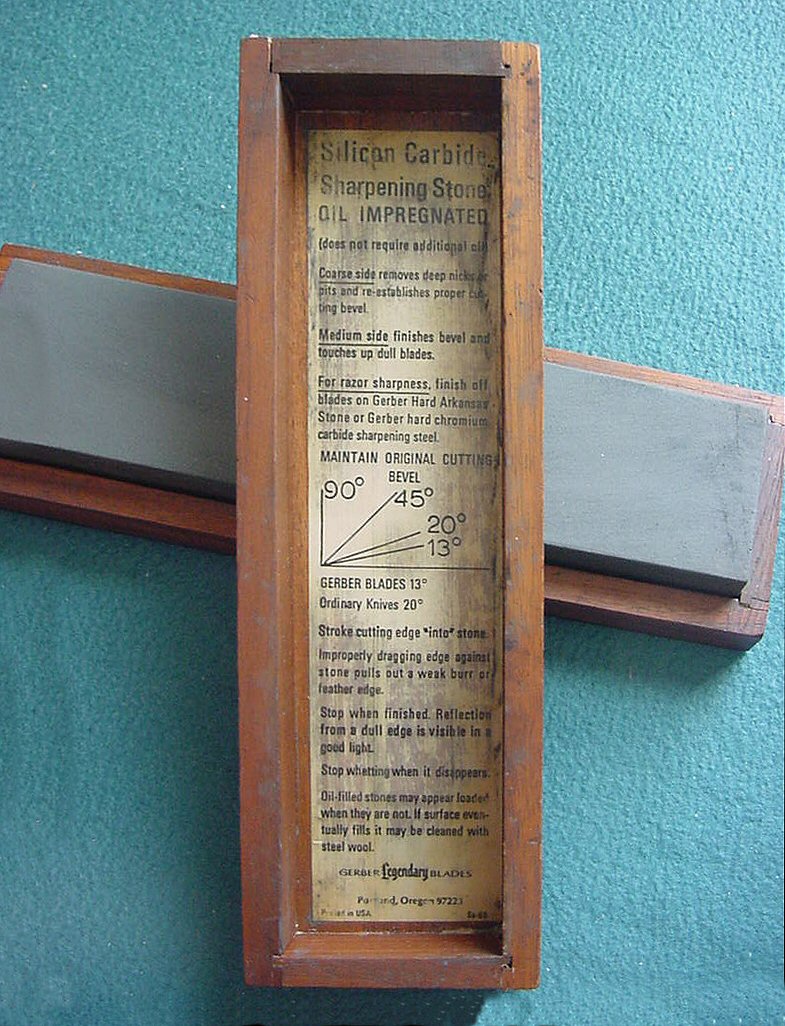 Silicon Carbide
Sharpening Stone
OIL IMPREGNATED
(does not require additional oil)
Coarse side removes deep nicks or
pits and re-establishes proper cut-
ting bevel.
Medium side finishes bevel and
touches up dull blades.
For razor sharpness, finish off
blades on Gerber Hard Arkansas
Stone or Gerber hard chromium
carbide sharpening steel.
MAINTAIN ORIGINAL CUTTING
BEVEL
90°
45°
20°
13°
GERBER BLADES 13°
Ordinary Knives 20°
Stroke cutting edge "into" stone.
Improperly dragging edge against
stone pulls out a weak burr or
feather edge.
Stop when finished. Reflection
from a dull edge is visible in a
good light.
Stop whetting when it disappears.
Oil-filled stones may appear loaded
when they are not. If surface even-
tually fills it may be cleaned with
steel wool.
GERBER Legendary BLADES
Portland, Oregon 97223
Printed in USA